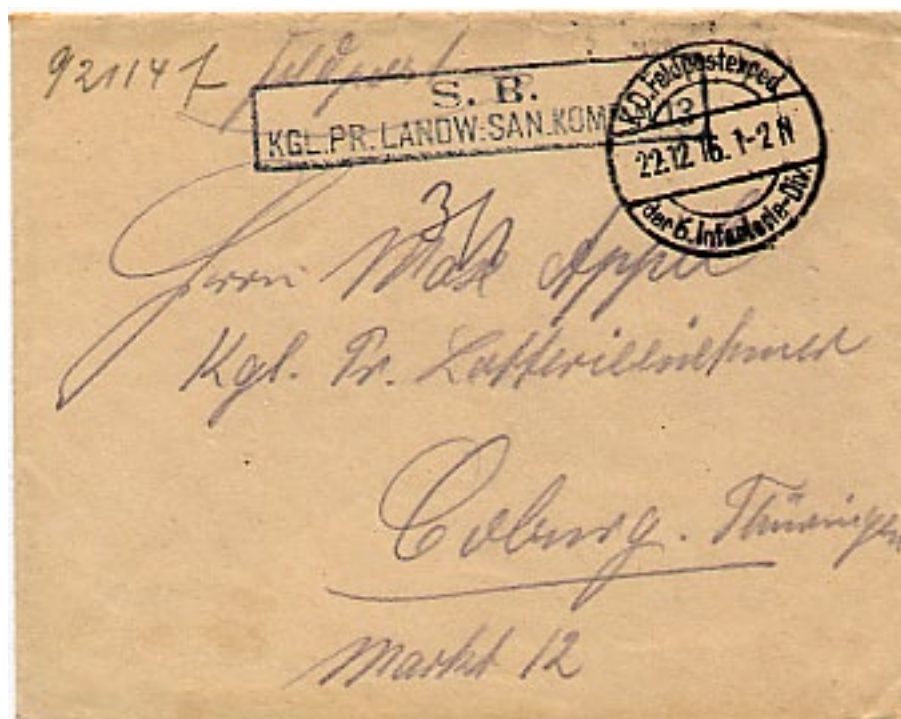 921147 Feldpost
S. B.
KGL.PR.LANDW.-SAN.KOMP. 13
K.D.Feldpostexped.
22.12.16. 1-2 N
der 6. Infanterie-Div.
31
Herrn Max Appel
Kgl. Pr. Lotterieeinnehmer
Coburg. Thüringen
Markt 12